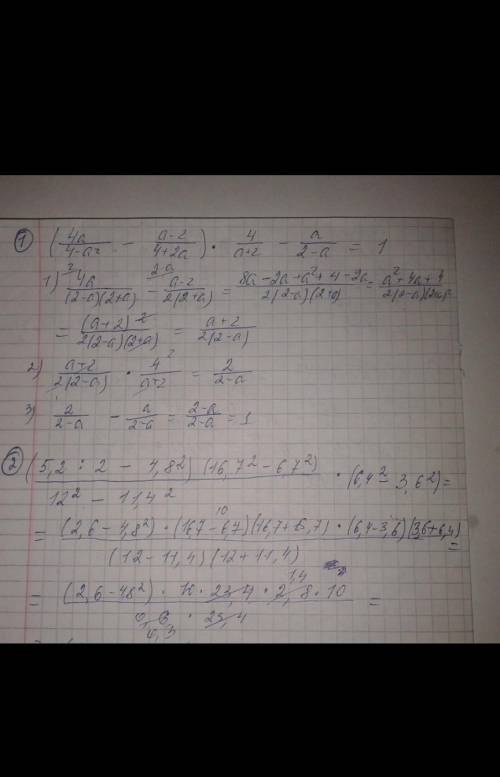 ① (4a/(4-a²) - (a-2)/(4+2a)) · 4/(a+2) - a/(2-a) = 1
1) 4a/((2-a)(2+a)) - (a-2)/(2(2+a)) = (8a-2a+a²+4-2a)/(2(2-a)(2+a)) = (a²+4a+4)/(2(2-a)(2+a))
= (a+2)²/(2(2-a)(2+a)) = (a+2)/(2(2-a))
2) (a+2)/(2(2-a)) · 4/(a+2) = 2/(2-a)
3) 2/(2-a) - a/(2-a) = (2-a)/(2-a) = 1
② (5,2 : 2 - 4,8²)(16,7² - 6,7²)/(12² - 11,4²) · (6,4² - 3,6²) =
= (2,6-4,8²)·(16,7-6,7)(16,7+6,7)·(6,4-3,6)(3,6+6,4)/((12-11,4)(12+11,4)) =
= (2,6-48²)·10·23,4·2,8·10/(0,6·23,4) =